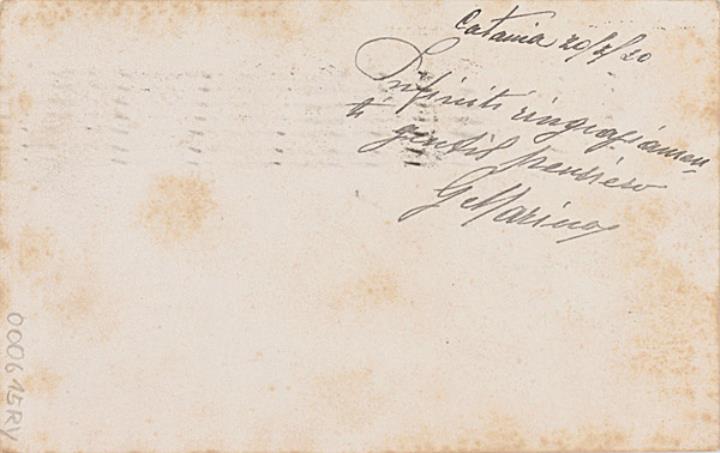 Catania 20/2/20
Infiniti ringraziamen,
ti gentil pensiero
G Marino
000615RV